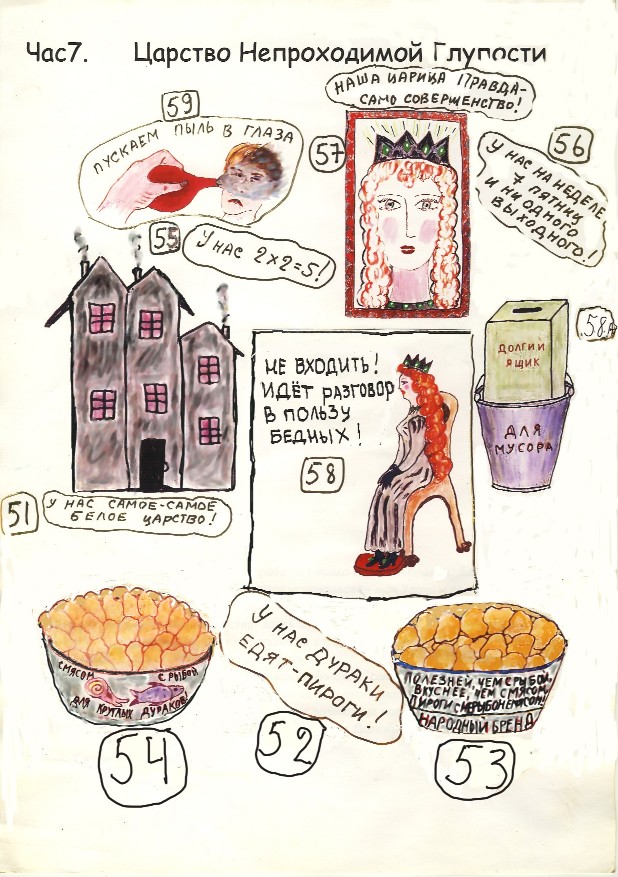 Час7. Царство Непроходимой Глупости
НАША ЦАРИЦА ПРАВДА-
САМО СОВЕРШЕНСТВО!
59
ПУСКАЕМ ПЫЛЬ В ГЛАЗА
57
56
У НАС НА НЕДЕЛЕ
7 ПЯТНИЦ
И НИ ОДНОГО
ВЫХОДНОГО!
55
У НАС 2×2=5!
58А
ДОЛГИЙ
ЯЩИК
ДЛЯ
МУСОРА
НЕ ВХОДИТЬ!
ИДЁТ РАЗГОВОР
В ПОЛЬЗУ
БЕДНЫХ!
58
51
У НАС САМОЕ-САМОЕ
БЕЛОЕ ЦАРСТВО!
У НАС ДУРАКИ
ЕДЯТ-ПИРОГИ!
52
С МЯСОМ С РЫБОЙ
ДЛЯ КРУГЛЫХ ДУРАКОВ!
54
ПОЛЕЗНЕЙ, ЧЕМ С РЫБОЙ,
ВКУСНЕЕ, ЧЕМ С МЯСОМ,
ПИРОГИ
НАРОДНЫЙ БРЕНД
53